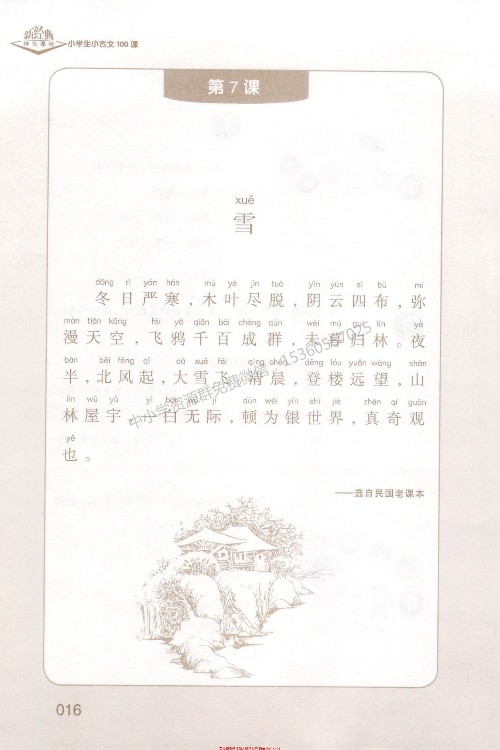 新经典
小学生小古文100课
第7课
xuě
雪
dōng rì yán hán mù yè jìn tuō yīn yún sì bù mí
冬日严寒，木叶尽脱，阴云四布，弥
màn tiān kōng fēi yā qiān bǎi chéng qún wèi mù lín yè
漫天空，飞鸦千百成群，未暮归林。夜
bàn běi fēng qǐ dà xuě fēi qīng chén dēng lóu yuǎn wàng shān
半，北风起，大雪飞。清晨，登楼远望，山
lín wū yǔ bái jì dùn wéi yín shì jiè zhēn qí guān
林屋宇，一白无际，顿为银世界，真奇观
yě
也。
——选自民国老课本
中小学资源群免费微信
016